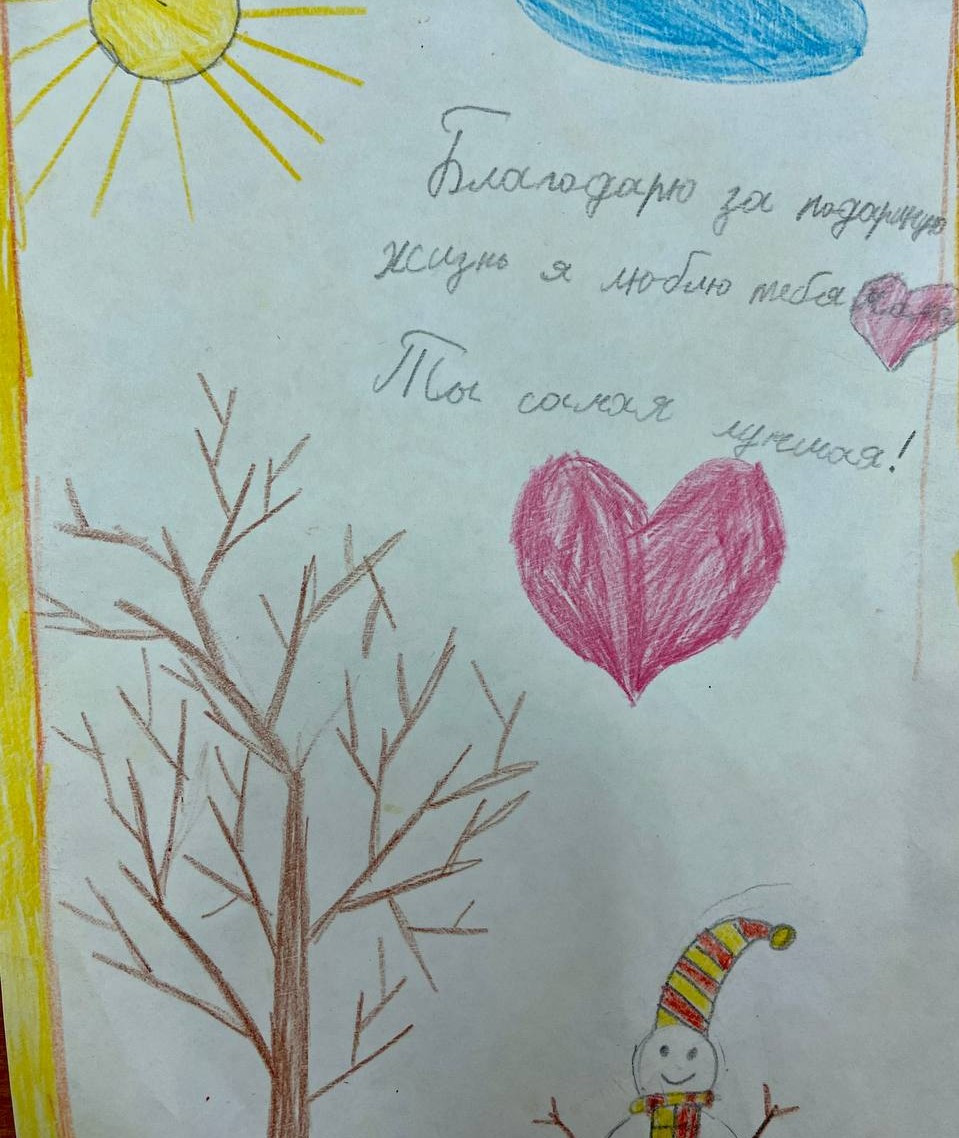 Благодарю за подариную
жизнь я люблю тебя мама
Ты самая лучшая!